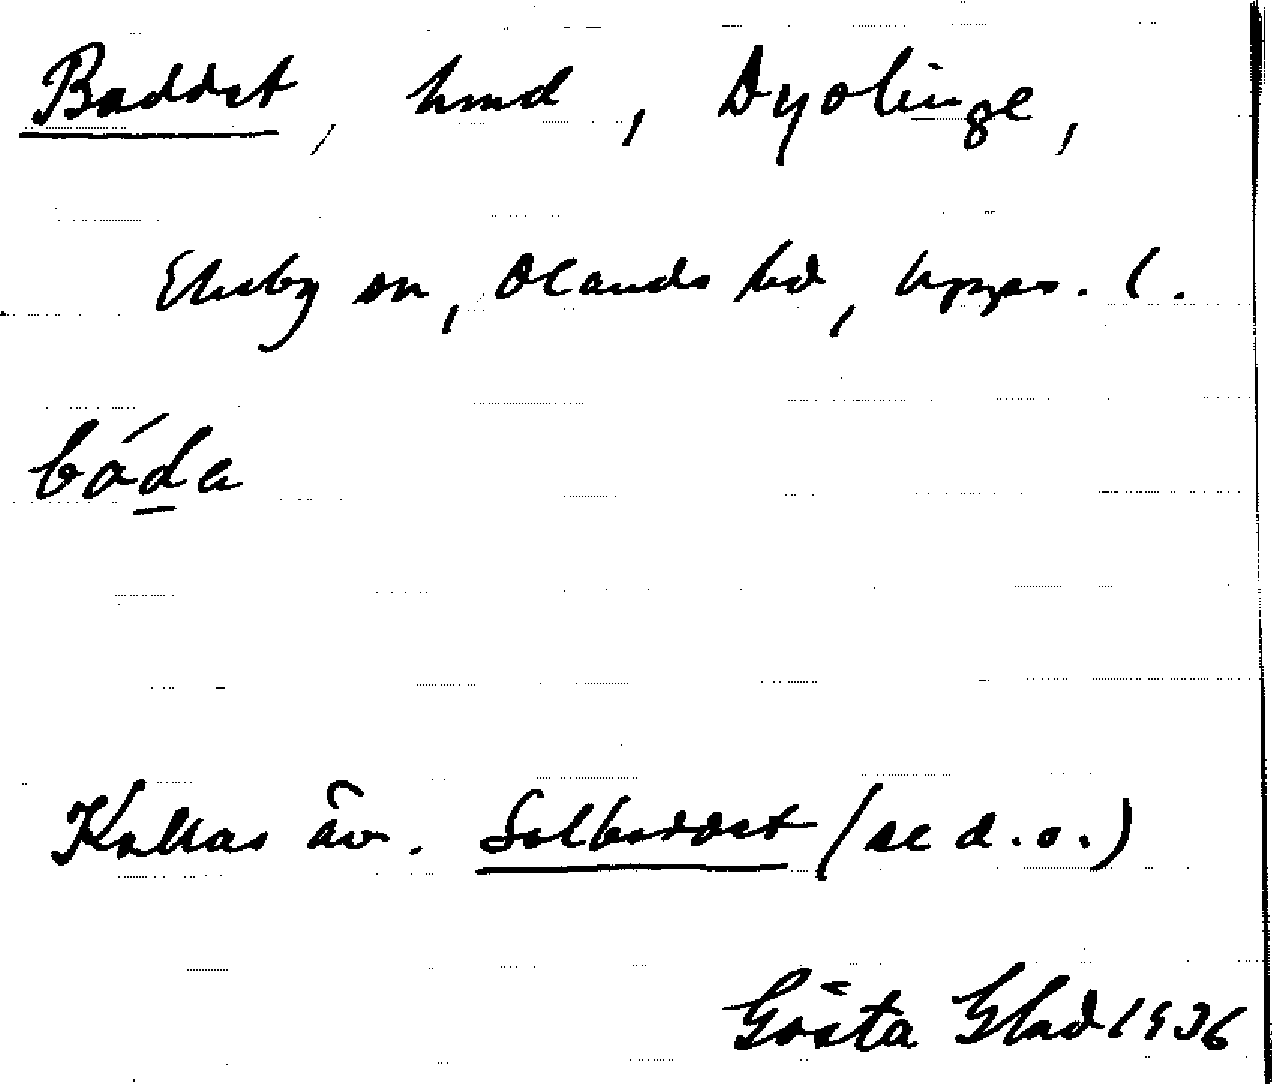 Baddet, hmd, Dyölinge,
Ekeby sn, Olands hd, Upps. l.
báda
Kallas äv. Solbaddet (se d.o.)
Gösta Glad 1936